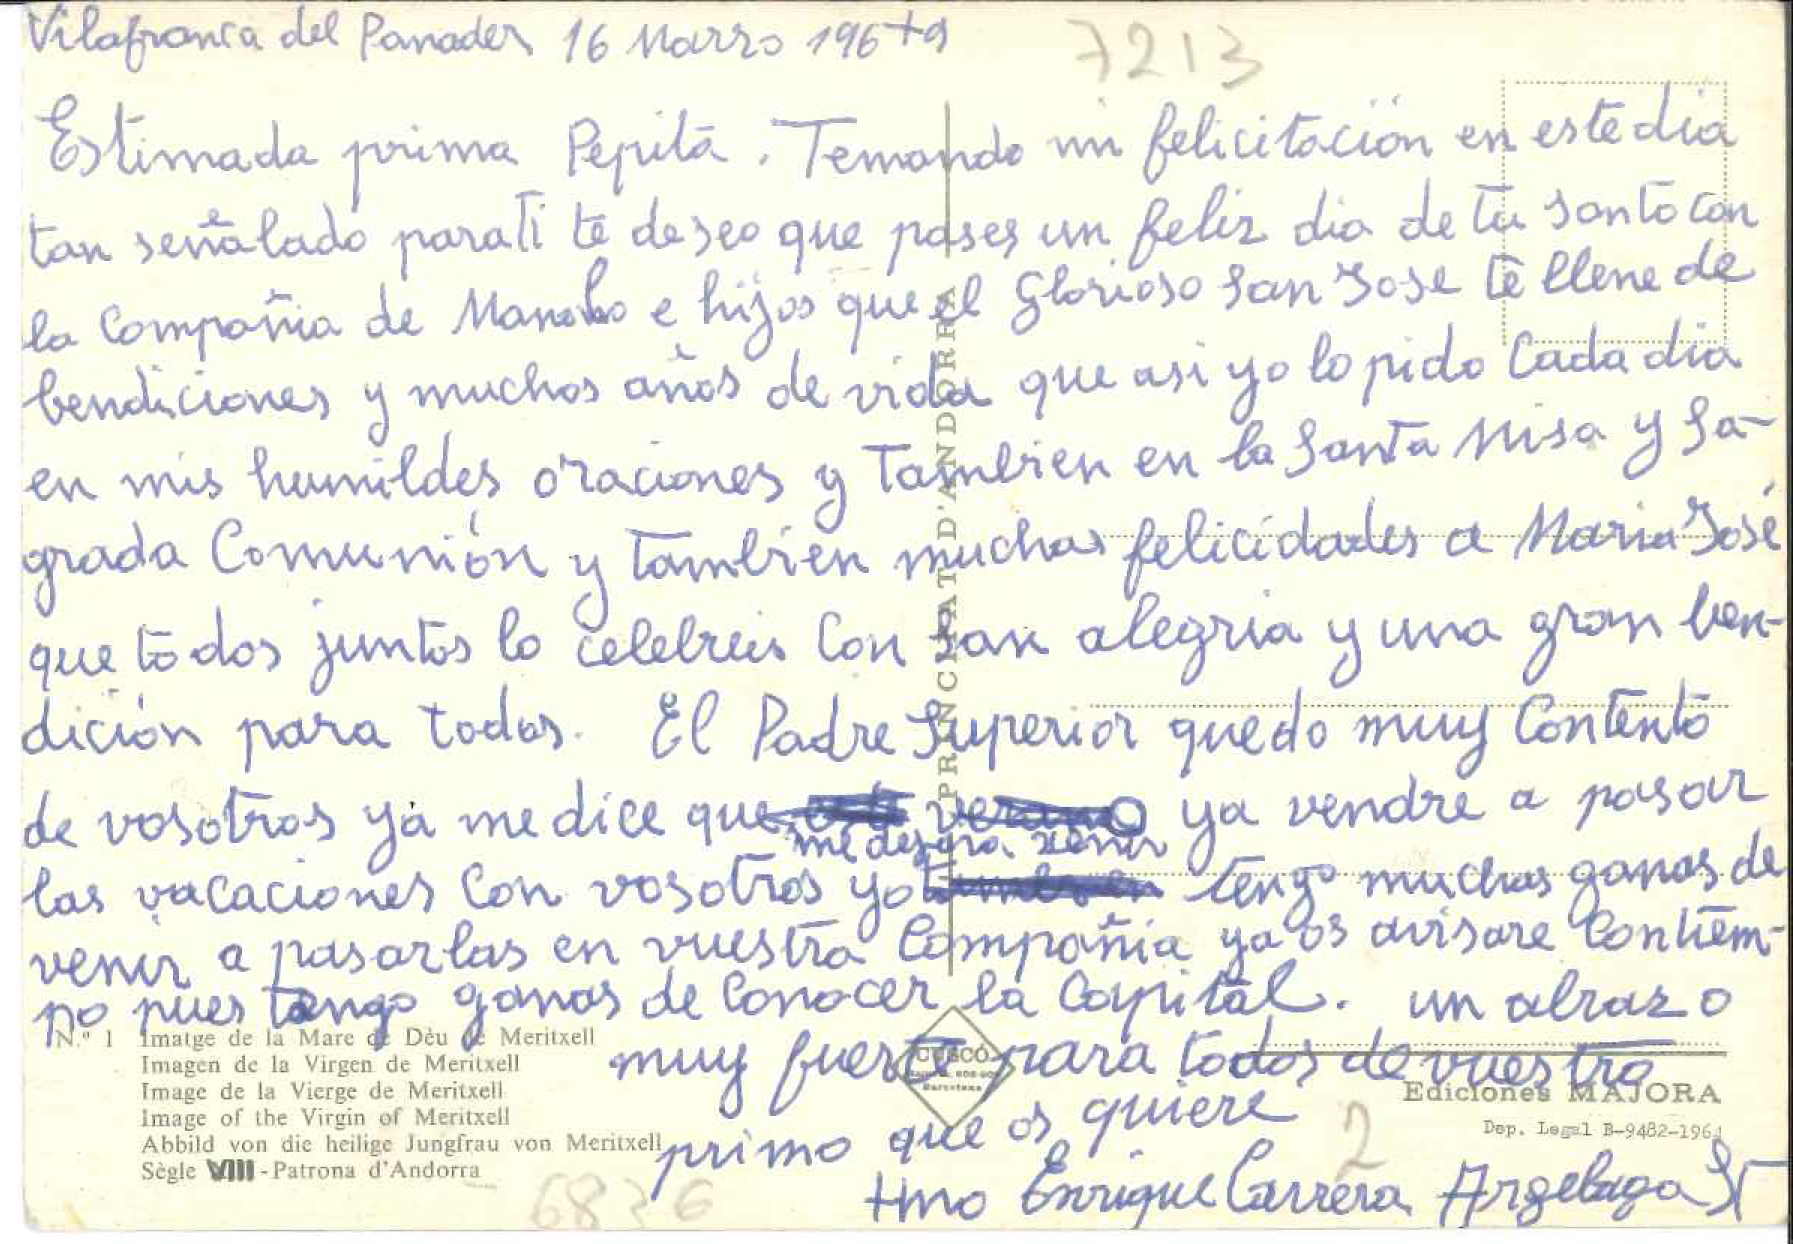 Vilafranca del Panades 16 Marzo 1967
7213
Estimada prima Pepita. Temando mi felicitación en este dia
tan señalado para ti te deseo que pases un feliz dia de tu santo con
la Compañia de Manolo e hijos que el Glorioso San Jose te llene de
bendiciones y muchos años de vida que asi yo lo pido Cada dia
en mis humildes oraciones y Tambien en la Santa Misa y Sa-
grada Comunión y tambien muchas felicidades a Maria José
que todos juntos lo celebreis Con san alegria y una gran ben-
dición para todos. El Padre Superior quedo muy Contento
de vosotros ya me dice que verano ya vendre a pasar
me dejara venir
las vacaciones Con vosotros yo tambien tengo muchas ganas de
venir a pasarlas en vuestra Compañia ya os avisare Con tiem-
po pues tengo ganas de Conocer la Capital. un abrazo
muy fuerte para todos de vuestro
primo que os quiere
Hno Enrique Carrera Argelaga
PRINCIPAT D'ANDORRA
N.º 1 Imatge de la Mare de Dèu de Meritxell
Imagen de la Virgen de Meritxell
Image de la Vierge de Meritxell
Image of the Virgin of Meritxell
Abbild von die heilige Jungfrau von Meritxell
Sègle VIII - Patrona d'Andorra
CUSCÓ
Barcelona
Ediciones MAJORA
Dep. Legal B-9482-1964
2
6836